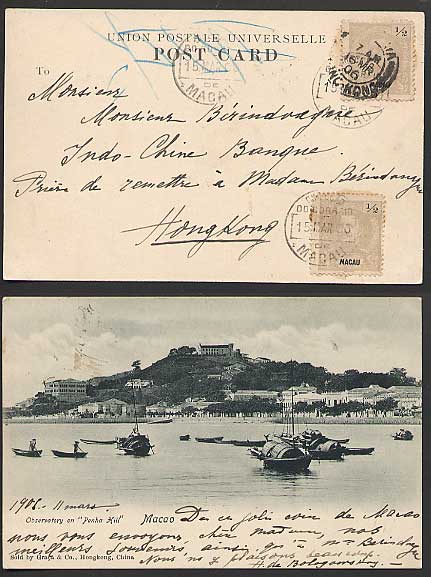 UNION POSTALE UNIVERSELLE
POST CARD
To
Monsieur
Monsieur Bérindoague
Indo-Chine Banque.
Prière de remettre à Madame Bérindoague
HongKong
½
7 AM
MR
06
HONG-KONG
15
MACAU
½
15 MAR 06
DE
MACAU
MACAU
1906. 11 mars.
Observatory on "Penha Hill" Macao
De ce joli coin de Macao
nous vous envoyons, cher madame, nos
meilleurs souvenirs, ainsi qu'à Mr Berindoague
Nous nous y plaisons beaucoup.
H. de
Sold by Graça & Co., Hongkong, China